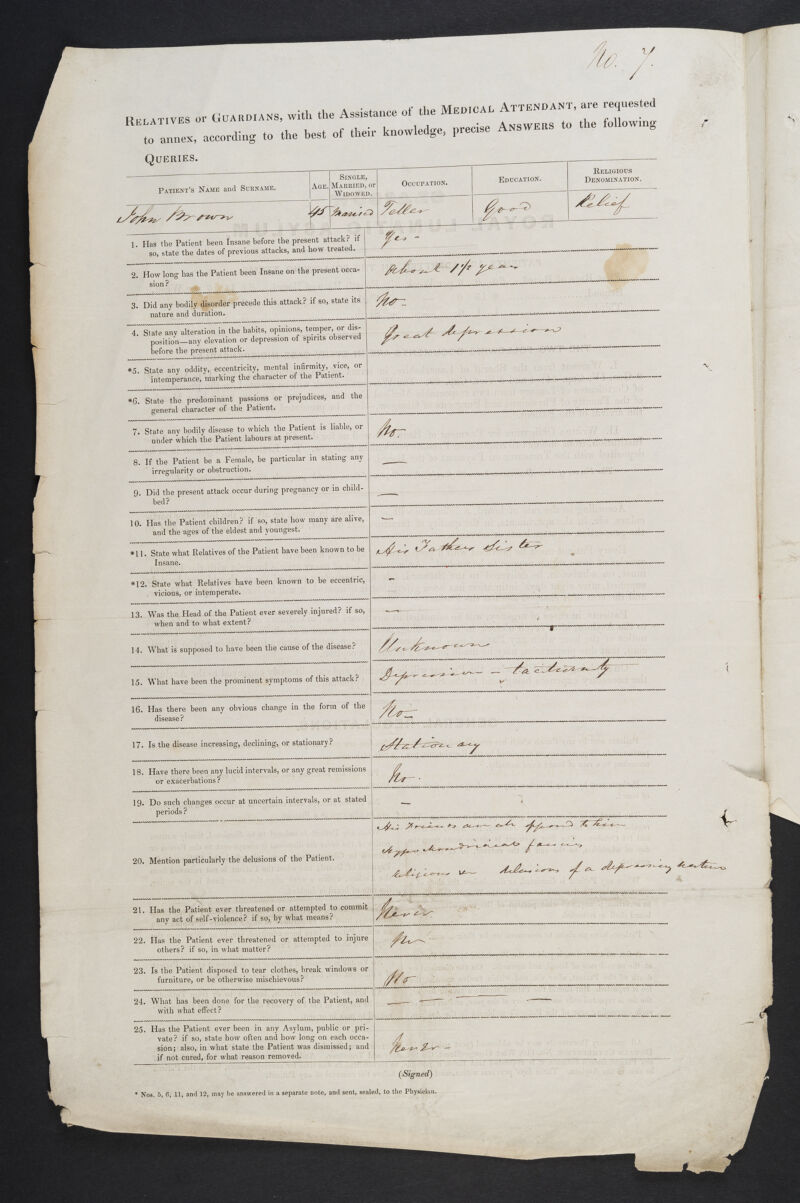 No. 7.
RELATIVES or GUARDIANS, with the Assistance of the MEDICAL ATTENDANT, are requested
to annex, according to the best of their knowledge, precise ANSWERS to the following
QUERIES.
PATIENT'S NAME and SURNAME. AGE. SINGLE, MARRIED, or WIDOWED. OCCUPATION. EDUCATION. RELIGIOUS DENOMINATION.
John Brown 45 Married Teller Good Relief
1. Has the Patient been Insane before the present attack? if Yes -
so, state the dates of previous attacks, and how treated.
2. How long has the Patient been Insane on the present occa- About 1 1/2 year
sion?
3. Did any bodily disorder precede this attack? if so, state its No -
nature and duration.
4. State any alteration in the habits, opinions, temper, or dis- Great depression
position—any elevation or depression of spirits observed
before the present attack.
*5. State any oddity, eccentricity, mental infirmity, vice, or
intemperance, marking the character of the Patient.
*6. State the predominant passions or prejudices, and the
general character of the Patient.
7. State any bodily disease to which the Patient is liable, or No -
under which the Patient labours at present.
8. If the Patient be a Female, be particular in stating any —
irregularity or obstruction.
9. Did the present attack occur during pregnancy or in child- —
bed?
10. Has the Patient children? if so, state how many are alive, —
and the ages of the eldest and youngest.
*11. State what Relatives of the Patient have been known to be His Fathers Sister
Insane.
*12. State what Relatives have been known to be eccentric, -
vicious, or intemperate.
13. Was the Head of the Patient ever severely injured? if so, —
when and to what extent?
14. What is supposed to have been the cause of the disease? Unknown
15. What have been the prominent symptoms of this attack? Depression - taciturnity
16. Has there been any obvious change in the form of the No -
disease?
17. Is the disease increasing, declining, or stationary? Stationary
18. Have there been any lucid intervals, or any great remissions No -
or exacerbations?
19. Do such changes occur at uncertain intervals, or at stated —
periods?
His Friends are all opposed to him
Hypochondriacal fancies
20. Mention particularly the delusions of the Patient.
religious delusions of a depressing nature
21. Has the Patient ever threatened or attempted to commit Never
any act of self-violence? if so, by what means?
22. Has the Patient ever threatened or attempted to injure No
others? if so, in what matter?
23. Is the Patient disposed to tear clothes, break windows or No
furniture, or be otherwise mischievous?
24. What has been done for the recovery of the Patient, and — — — —
with what effect?
25. Has the Patient ever been in any Asylum, public or pri-
vate? if so, state how often and how long on each occa-
sion; also, in what state the Patient was dismissed; and Never -
if not cured, for what reason removed.
(Signed)
* Nos. 5, 6, 11, and 12, may be answered in a separate note, and sent, sealed, to the Physician.